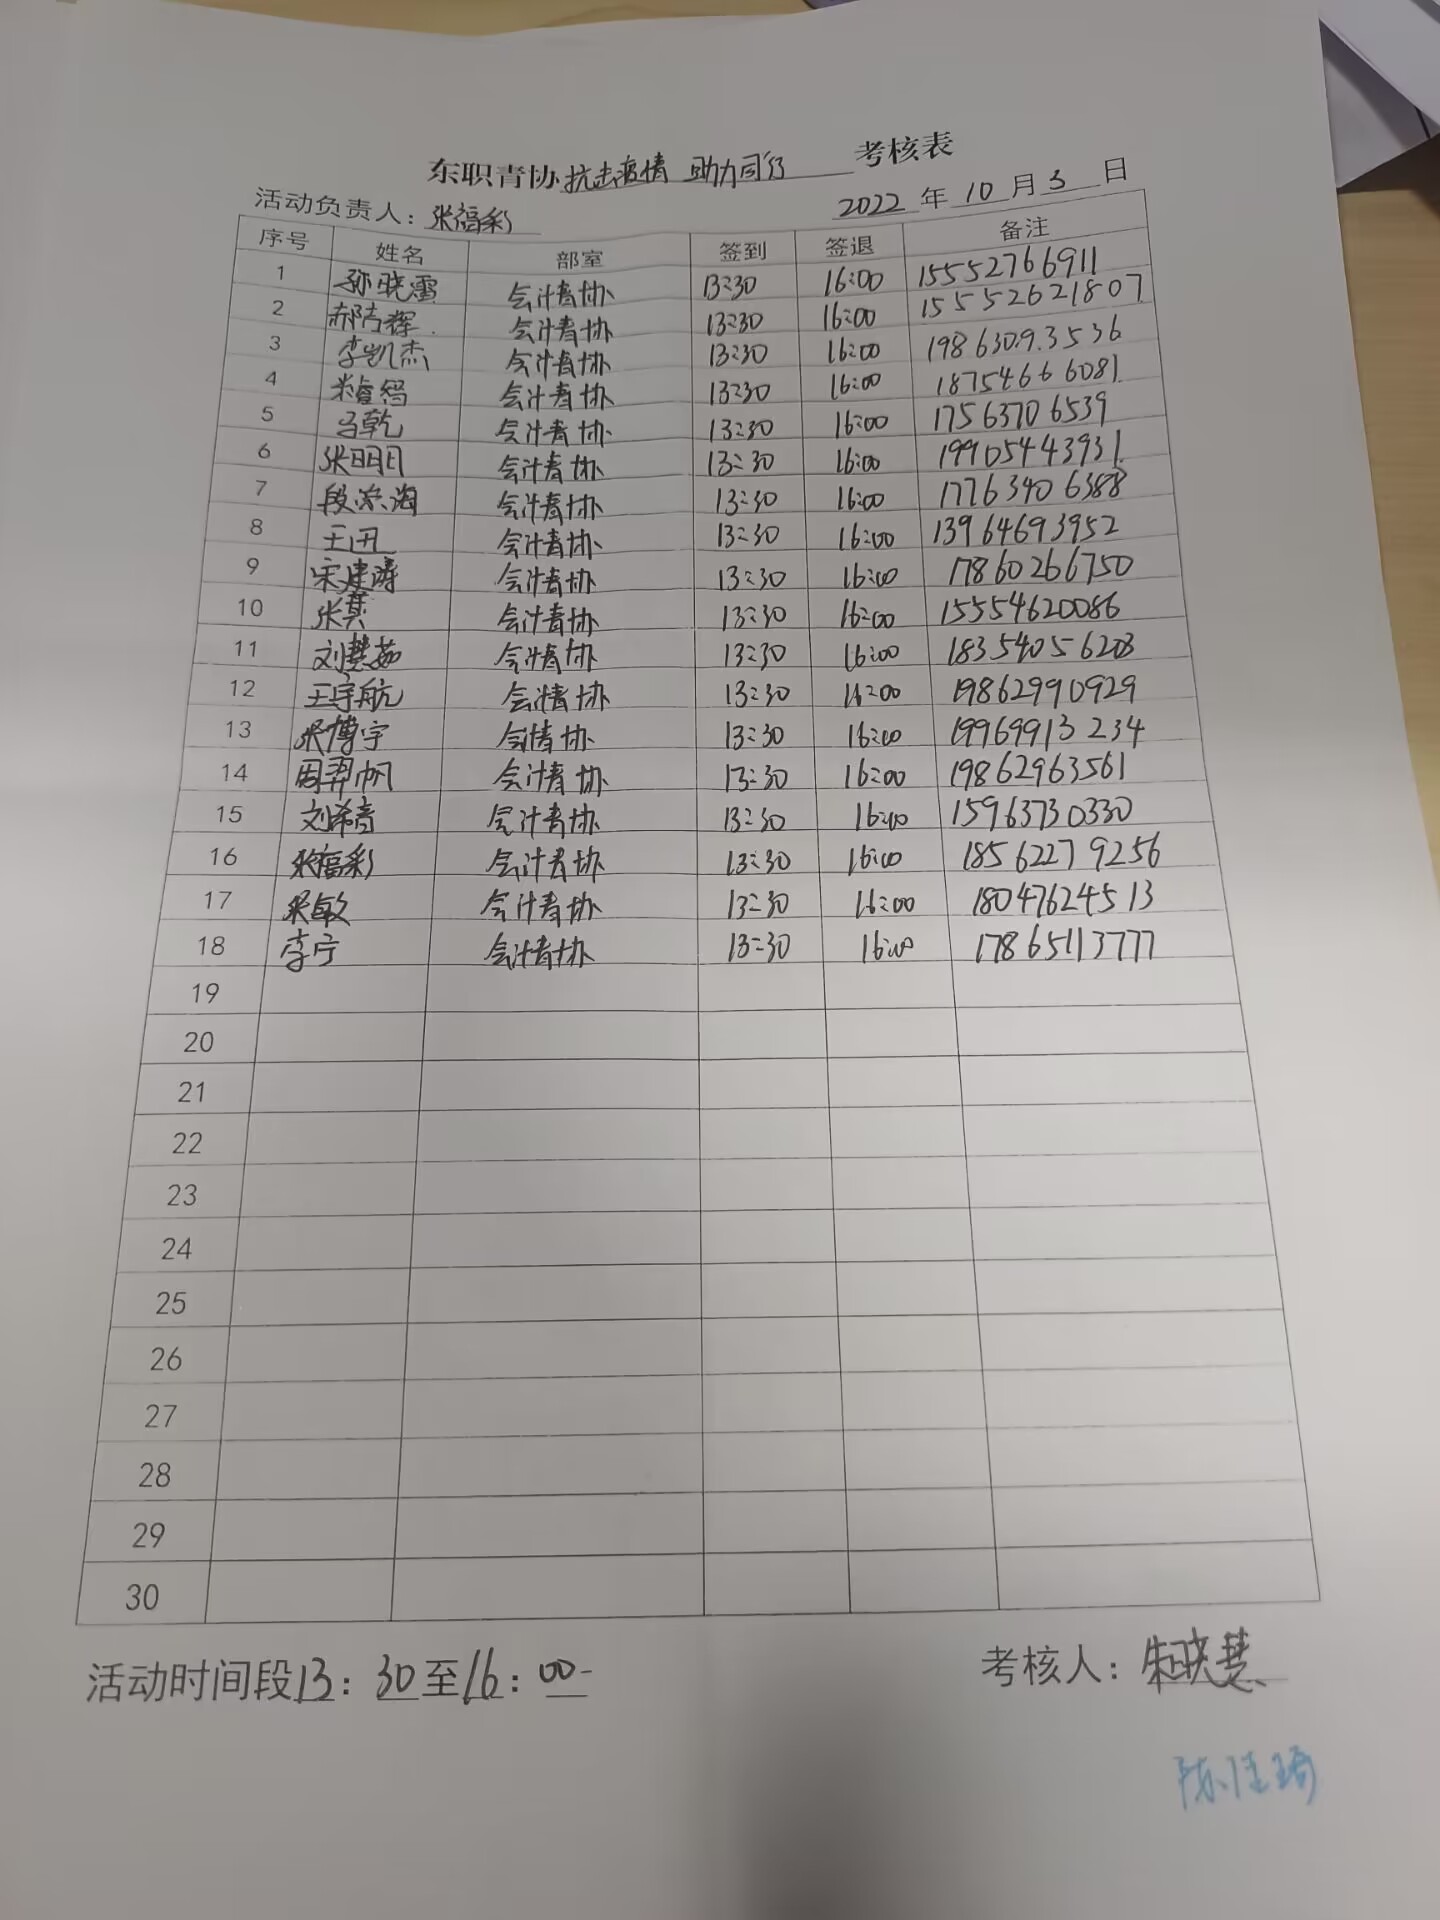 东职青协抗击疫情 助力同行 考核表
活动负责人：张福彩 2022 年 10 月 3 日
序号 姓名 部室 签到 签退 备注
1 孙晓雪 会计青协 13:30 16:00 15552766911
2 郝吉辉 会计青协 13:30 16:00 15552621807
3 李凯杰 会计青协 13:30 16:00 19863093536
4 会计青协 13:30 16:00 18754666081
5 马乾 会计青协 13:30 16:00 17563706539
6 张明日 会计青协 13:30 16:00 19905443931
7 会计青协 13:30 16:00 17763406388
8 王丑 会计青协 13:30 16:00 13964693952
9 宋建涛 会计青协 13:30 16:00 17860266750
10 张其 会计青协 13:30 16:00 15554620086
11 刘慧茹 会计青协 13:30 16:00 18354056203
12 王宇航 会计青协 13:30 16:00 19862990929
13 张博宇 会计青协 13:30 16:00 19969913234
14 周羿帆 会计青协 13:30 16:00 19862963561
15 刘希音 会计青协 13:30 16:00 15963730330
16 张福彩 会计青协 13:30 16:00 18562279256
17 张敏 会计青协 13:30 16:00 18047624513
18 李宁 会计青协 13:30 16:00 17865113777
19
20
21
22
23
24
25
26
27
28
29
30
活动时间段13：30至16：00 考核人：朱晓慧
陈佳琦